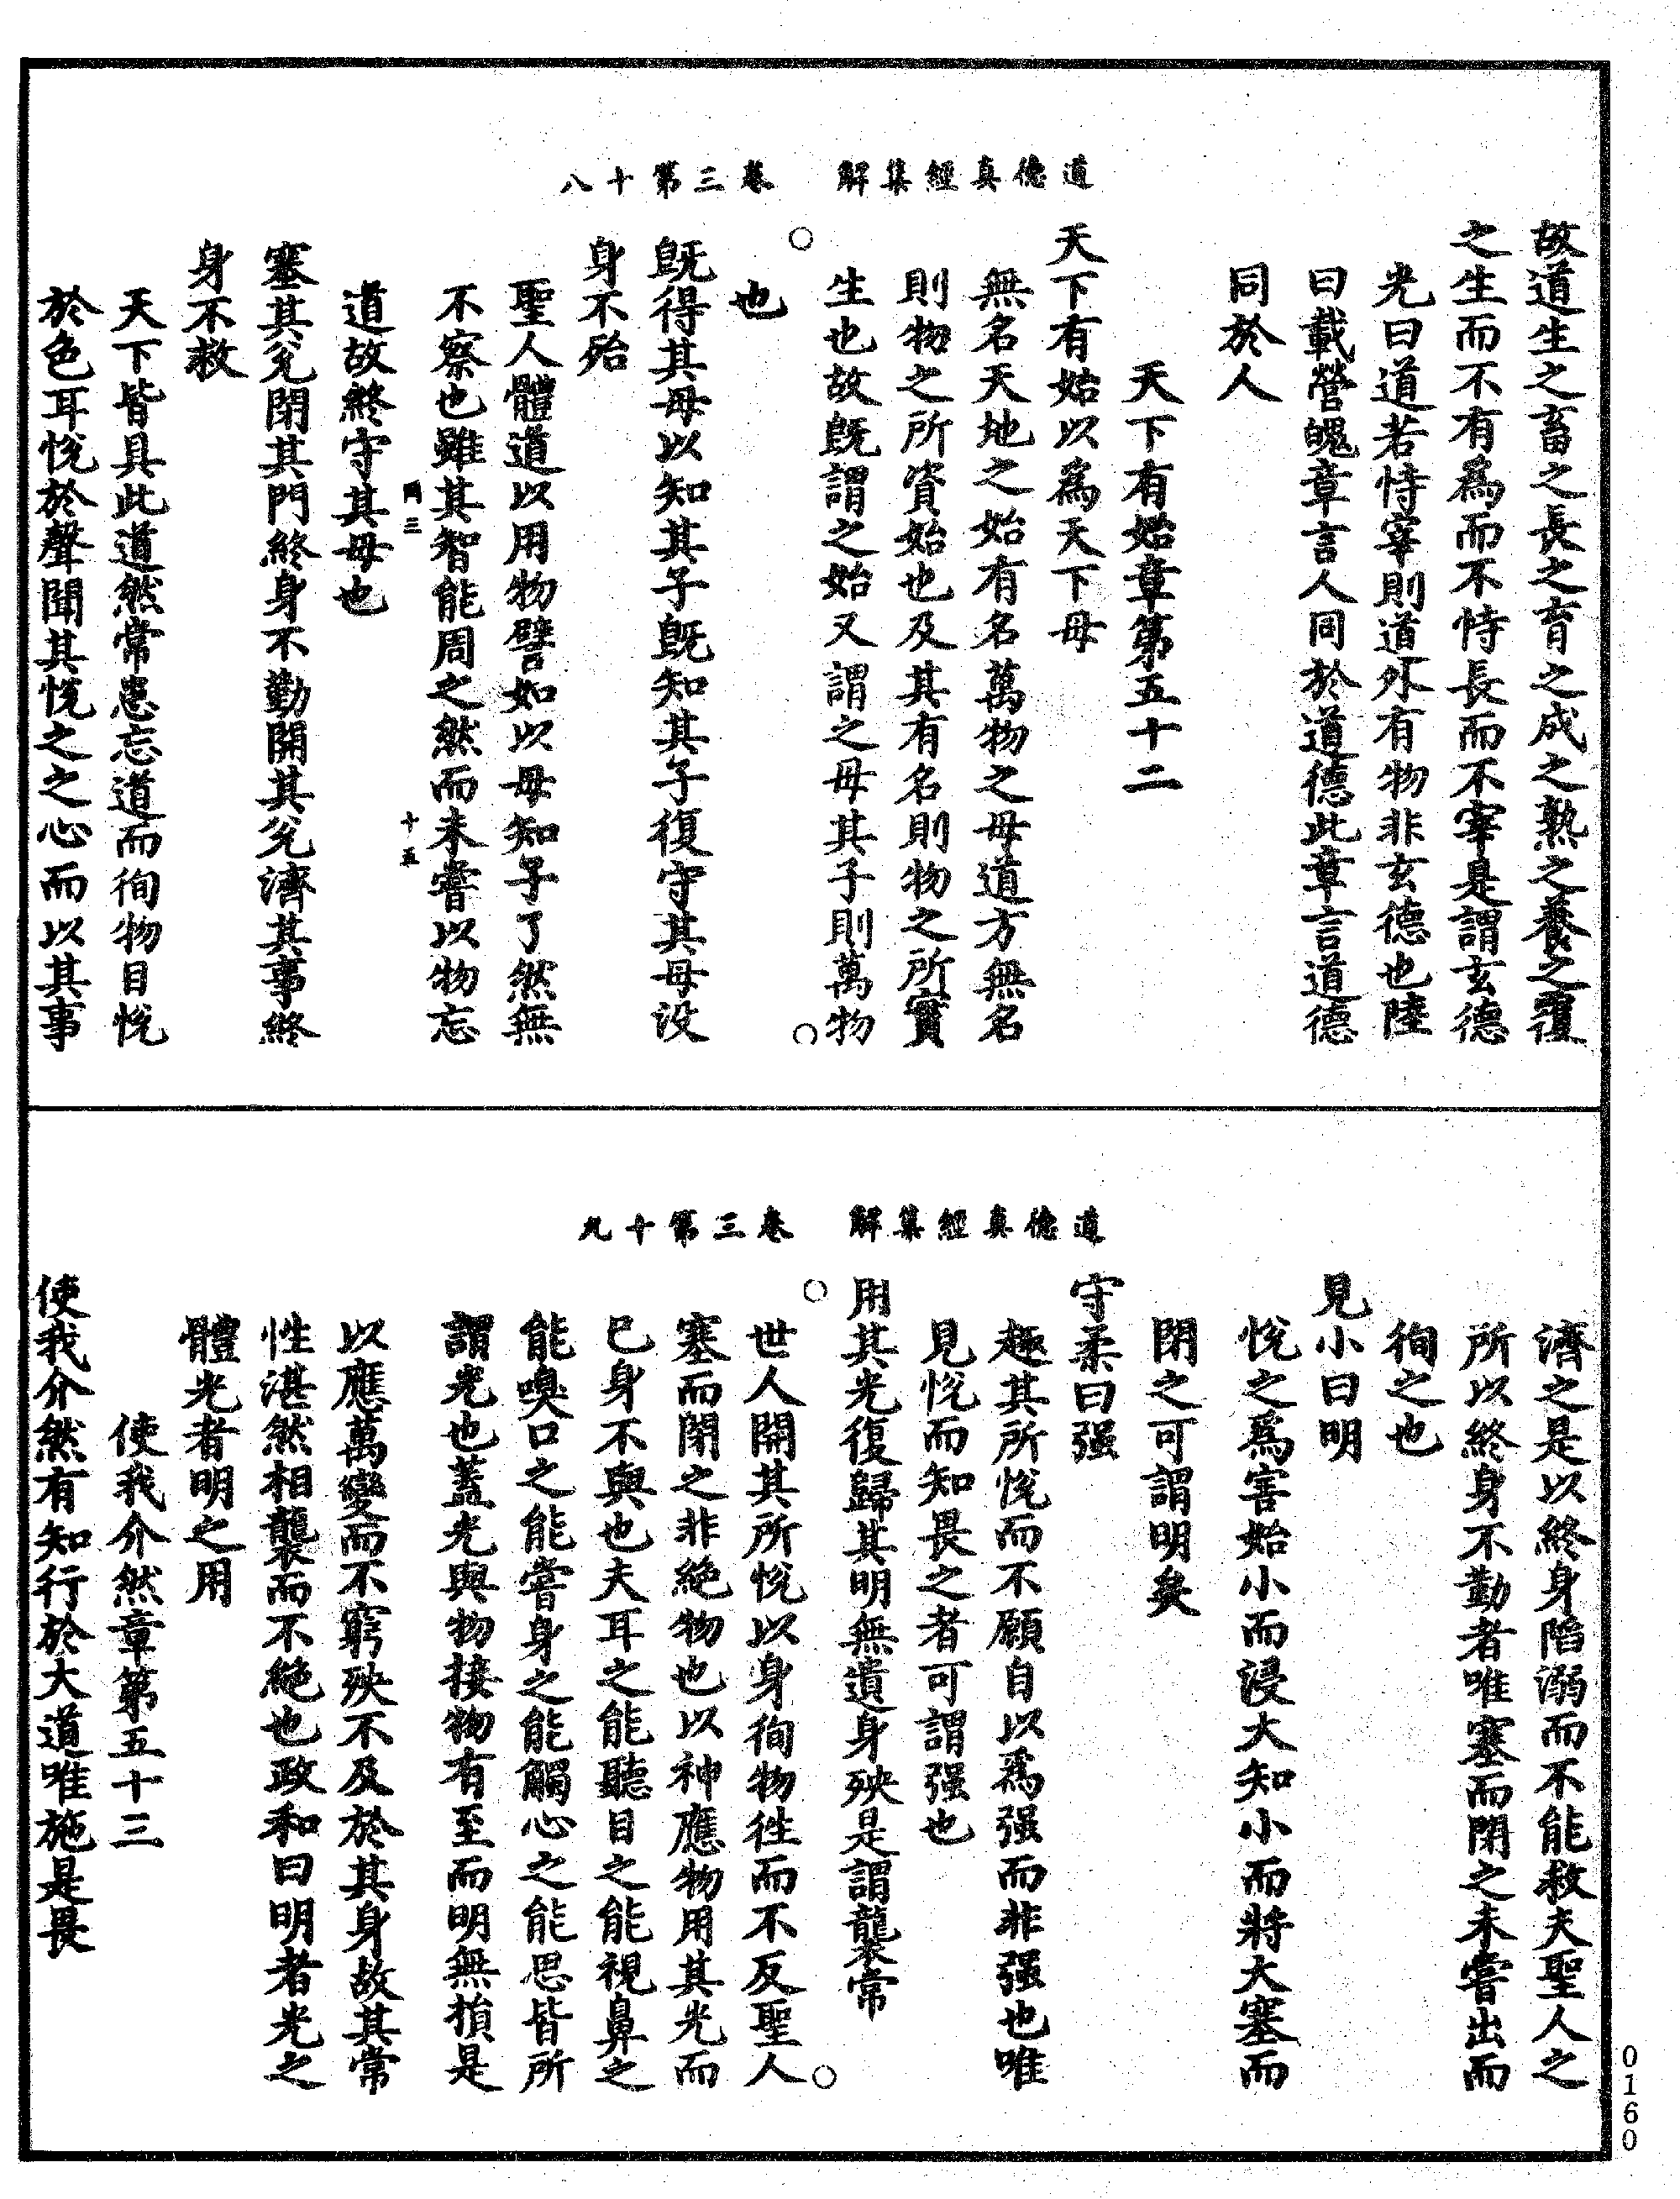 道德真經集解　卷三第十八
故道生之畜之長之育之成之熟之養之覆
之生而不有爲而不恃長而不宰是謂玄德
光曰道若恃宰則道外有物非玄德也陸
曰載營魄章言人同於道德此章言道德
同於人
天下有始章第五十二
天下有始以爲天下母
無名天地之始有名萬物之母道方無名
則物之所資始也及其有名則物之所實
生也故旣謂之始又謂之母其子則萬物
也
旣得其母以知其子旣知其子復守其母没
身不殆
聖人體道以用物譬如以母知子了然無
不察也雖其智能周之然而未嘗以物忘
罔三　十五
道故終守其母也
塞其兊閉其門終身不勤開其兊濟其事終
身不救
天下皆具此道然常患忘道而徇物目悅
於色耳悅於聲聞其悅之之心而以其事
道德真經集解　卷三第十九
濟之是以終身陷溺而不能救夫聖人之
所以終身不勤者唯塞而閉之未嘗出而
徇之也
見小曰明
悅之爲害始小而浸大知小而將大塞而
閉之可謂明矣
守柔曰强
趣其所悅而不顧自以爲强而非强也唯
見悅而知畏之者可謂强也
用其光復歸其明無遺身殃是謂襲常
世人開其所悅以身徇物徃而不反聖人
塞而閉之非絶物也以神應物用其光而
已身不與也夫耳之能聽目之能視鼻之
能嗅口之能嘗身之能觸心之能思皆所
謂光也蓋光與物接物有至而明無損是
以應萬變而不窮殃不及於其身故其常
性湛然相襲而不絶也政和曰明者光之
體光者明之用
使我介然章第五十三
使我介然有知行於大道唯施是畏
0160